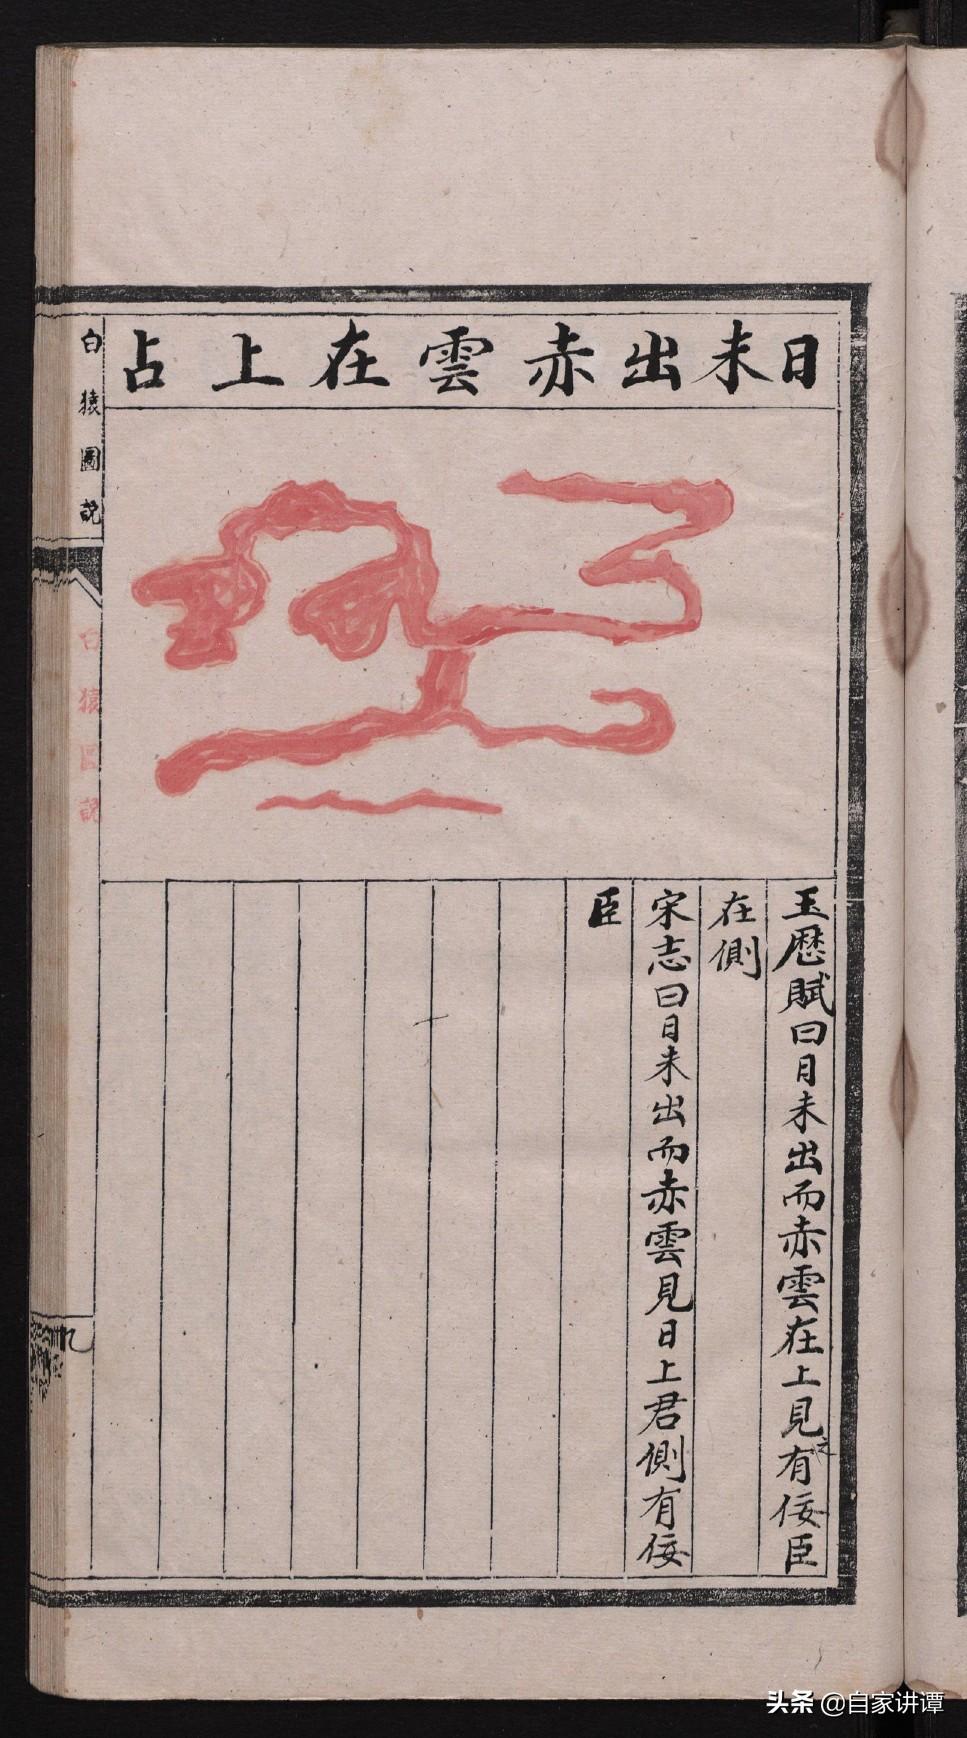 日未出赤雲在上占
玉歷賦曰日未出而赤雲在上見之有佞臣
在側
宋志曰日未出而赤雲見日上君側有佞
臣
白猿圖説
白猿圖説
九
头条 @自家讲谭